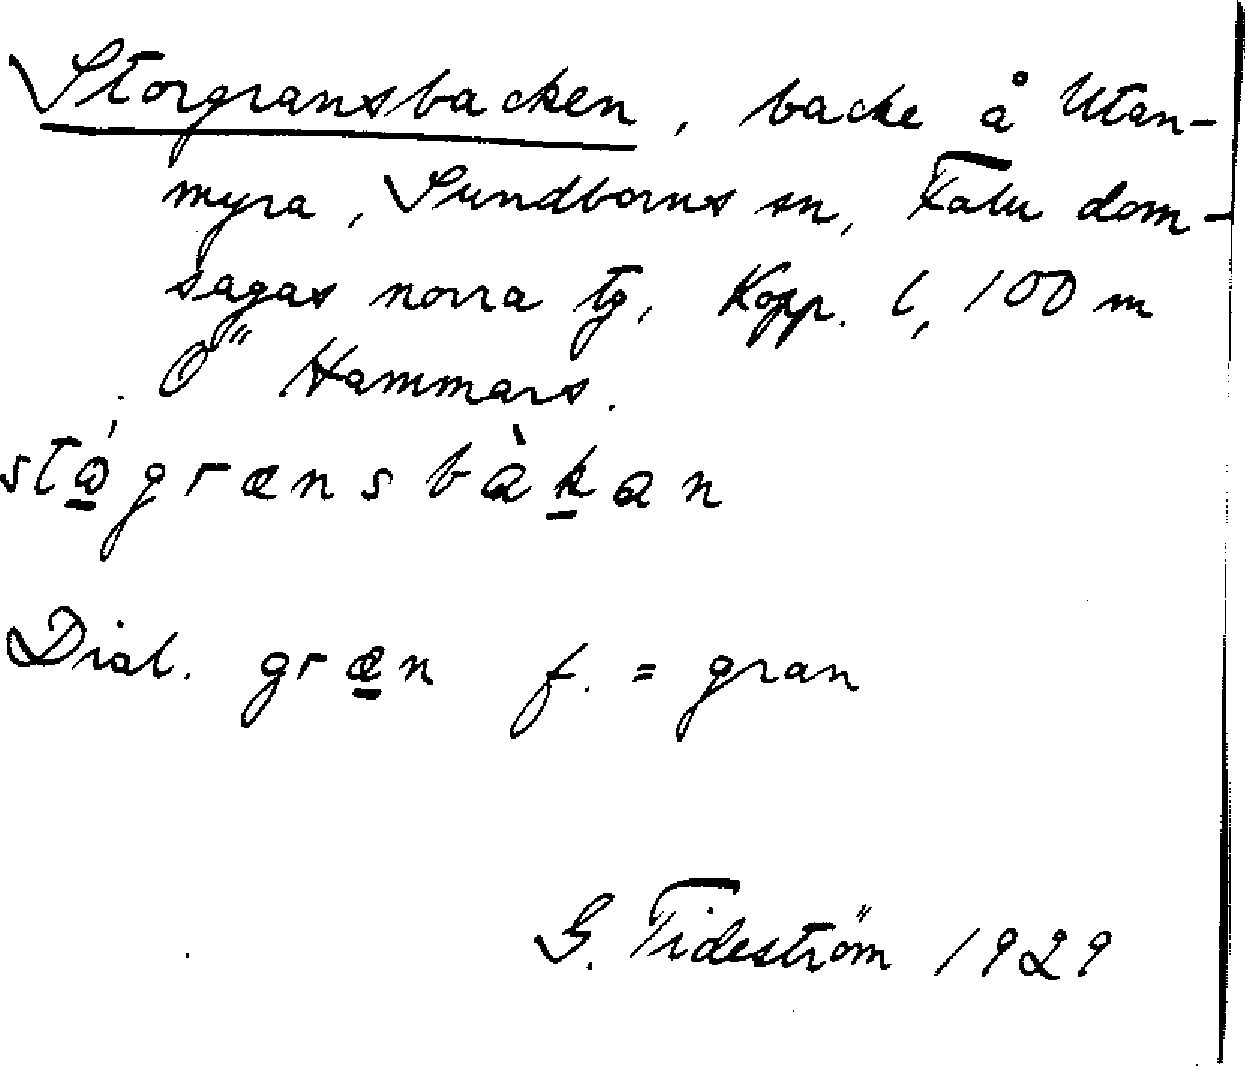 Storgransbacken, backe å Utan-
myra, Sundborns sn, Falu dom-
sagas norra tg, Kopp. l, 100 m
Ö Hammars.
stǻgrænsbàkan
Dial. græn f. = gran
G. Tideström 1929